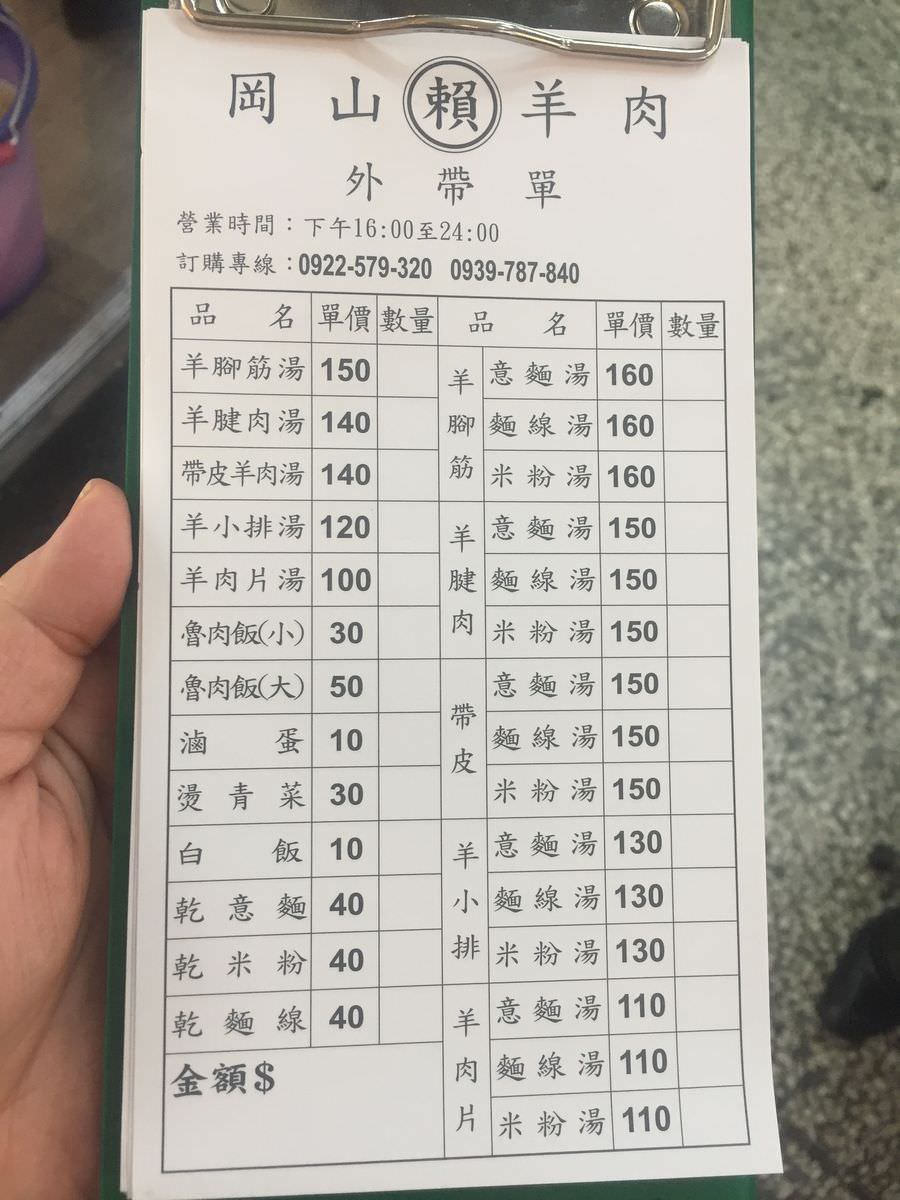 岡山賴羊肉
外帶單
營業時間：下午16:00至24:00
訂購專線：0922-579-320 0939-787-840
品名 單價 數量 品名 單價 數量
羊腳筋湯 150
羊腱肉湯 140
帶皮羊肉湯 140
羊小排湯 120
羊肉片湯 100
魯肉飯(小) 30
魯肉飯(大) 50
滷蛋 10
燙青菜 30
白飯 10
乾意麵 40
乾米粉 40
乾麵線 40
金額$
羊腳筋
意麵湯 160
麵線湯 160
米粉湯 160
羊腱肉
意麵湯 150
麵線湯 150
米粉湯 150
帶皮
意麵湯 150
麵線湯 150
米粉湯 150
羊小排
意麵湯 130
麵線湯 130
米粉湯 130
羊肉片
意麵湯 110
麵線湯 110
米粉湯 110